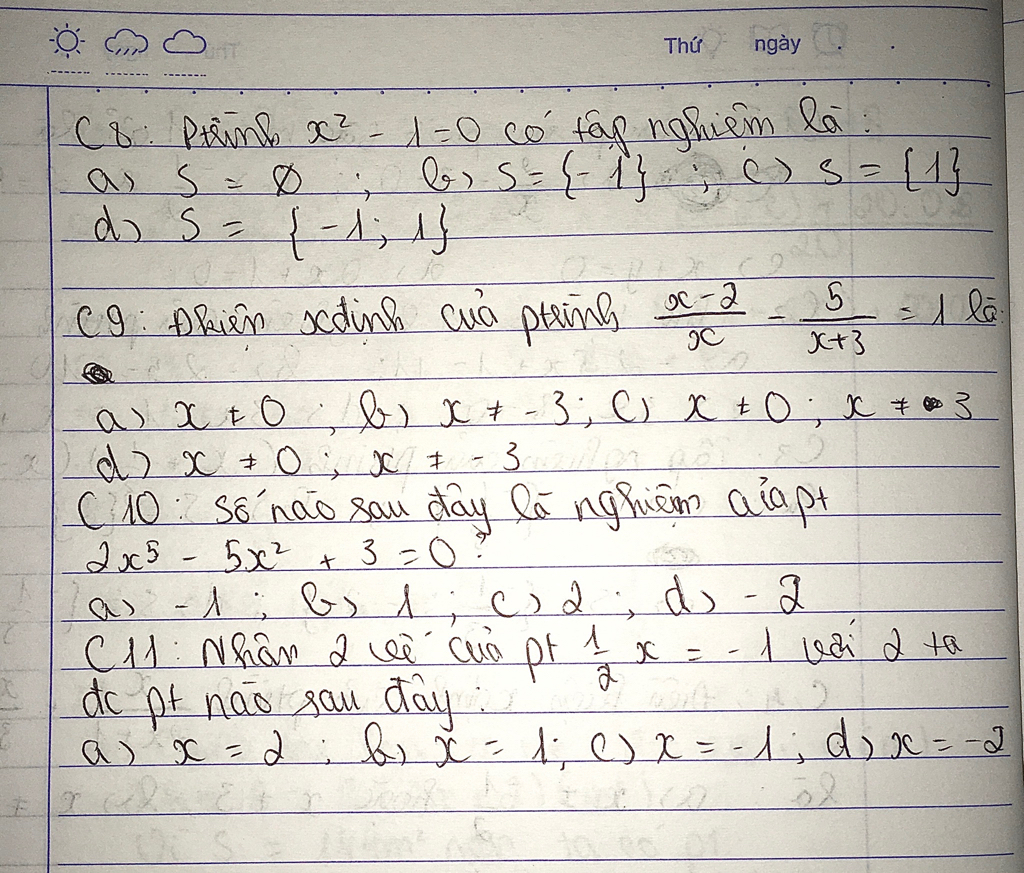 Thứ ngày
C8: Ptrình x² - 1 = 0 có tập nghiệm là:
a) S = ∅ ; b) S = {-1} ; c) S = {1}
d) S = {-1; 1}
C9: Đkiện xđịnh của ptrình (x-2)/x - 5/(x+3) = 1 là:
a) x ≠ 0 ; b) x ≠ -3; c) x ≠ 0 ; x ≠ 3
d) x ≠ 0 ; x ≠ -3
C10: Số nào sau đây là nghiệm của pt
2x⁵ - 5x² + 3 = 0?
a) -1 ; b) 1 ; c) 2 ; d) -2
C11: Nhân 2 vế của pt 1/2 x = -1 với 2 ta
đc pt nào sau đây:
a) x = 2 ; b) x = 1; c) x = -1 ; d) x = -2